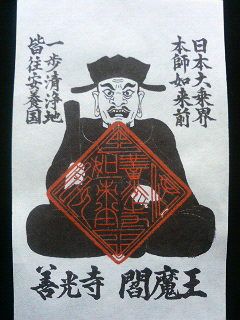 日本大乗界
本師如来前
一歩清浄地
皆往安養国
善光寺 閻魔王